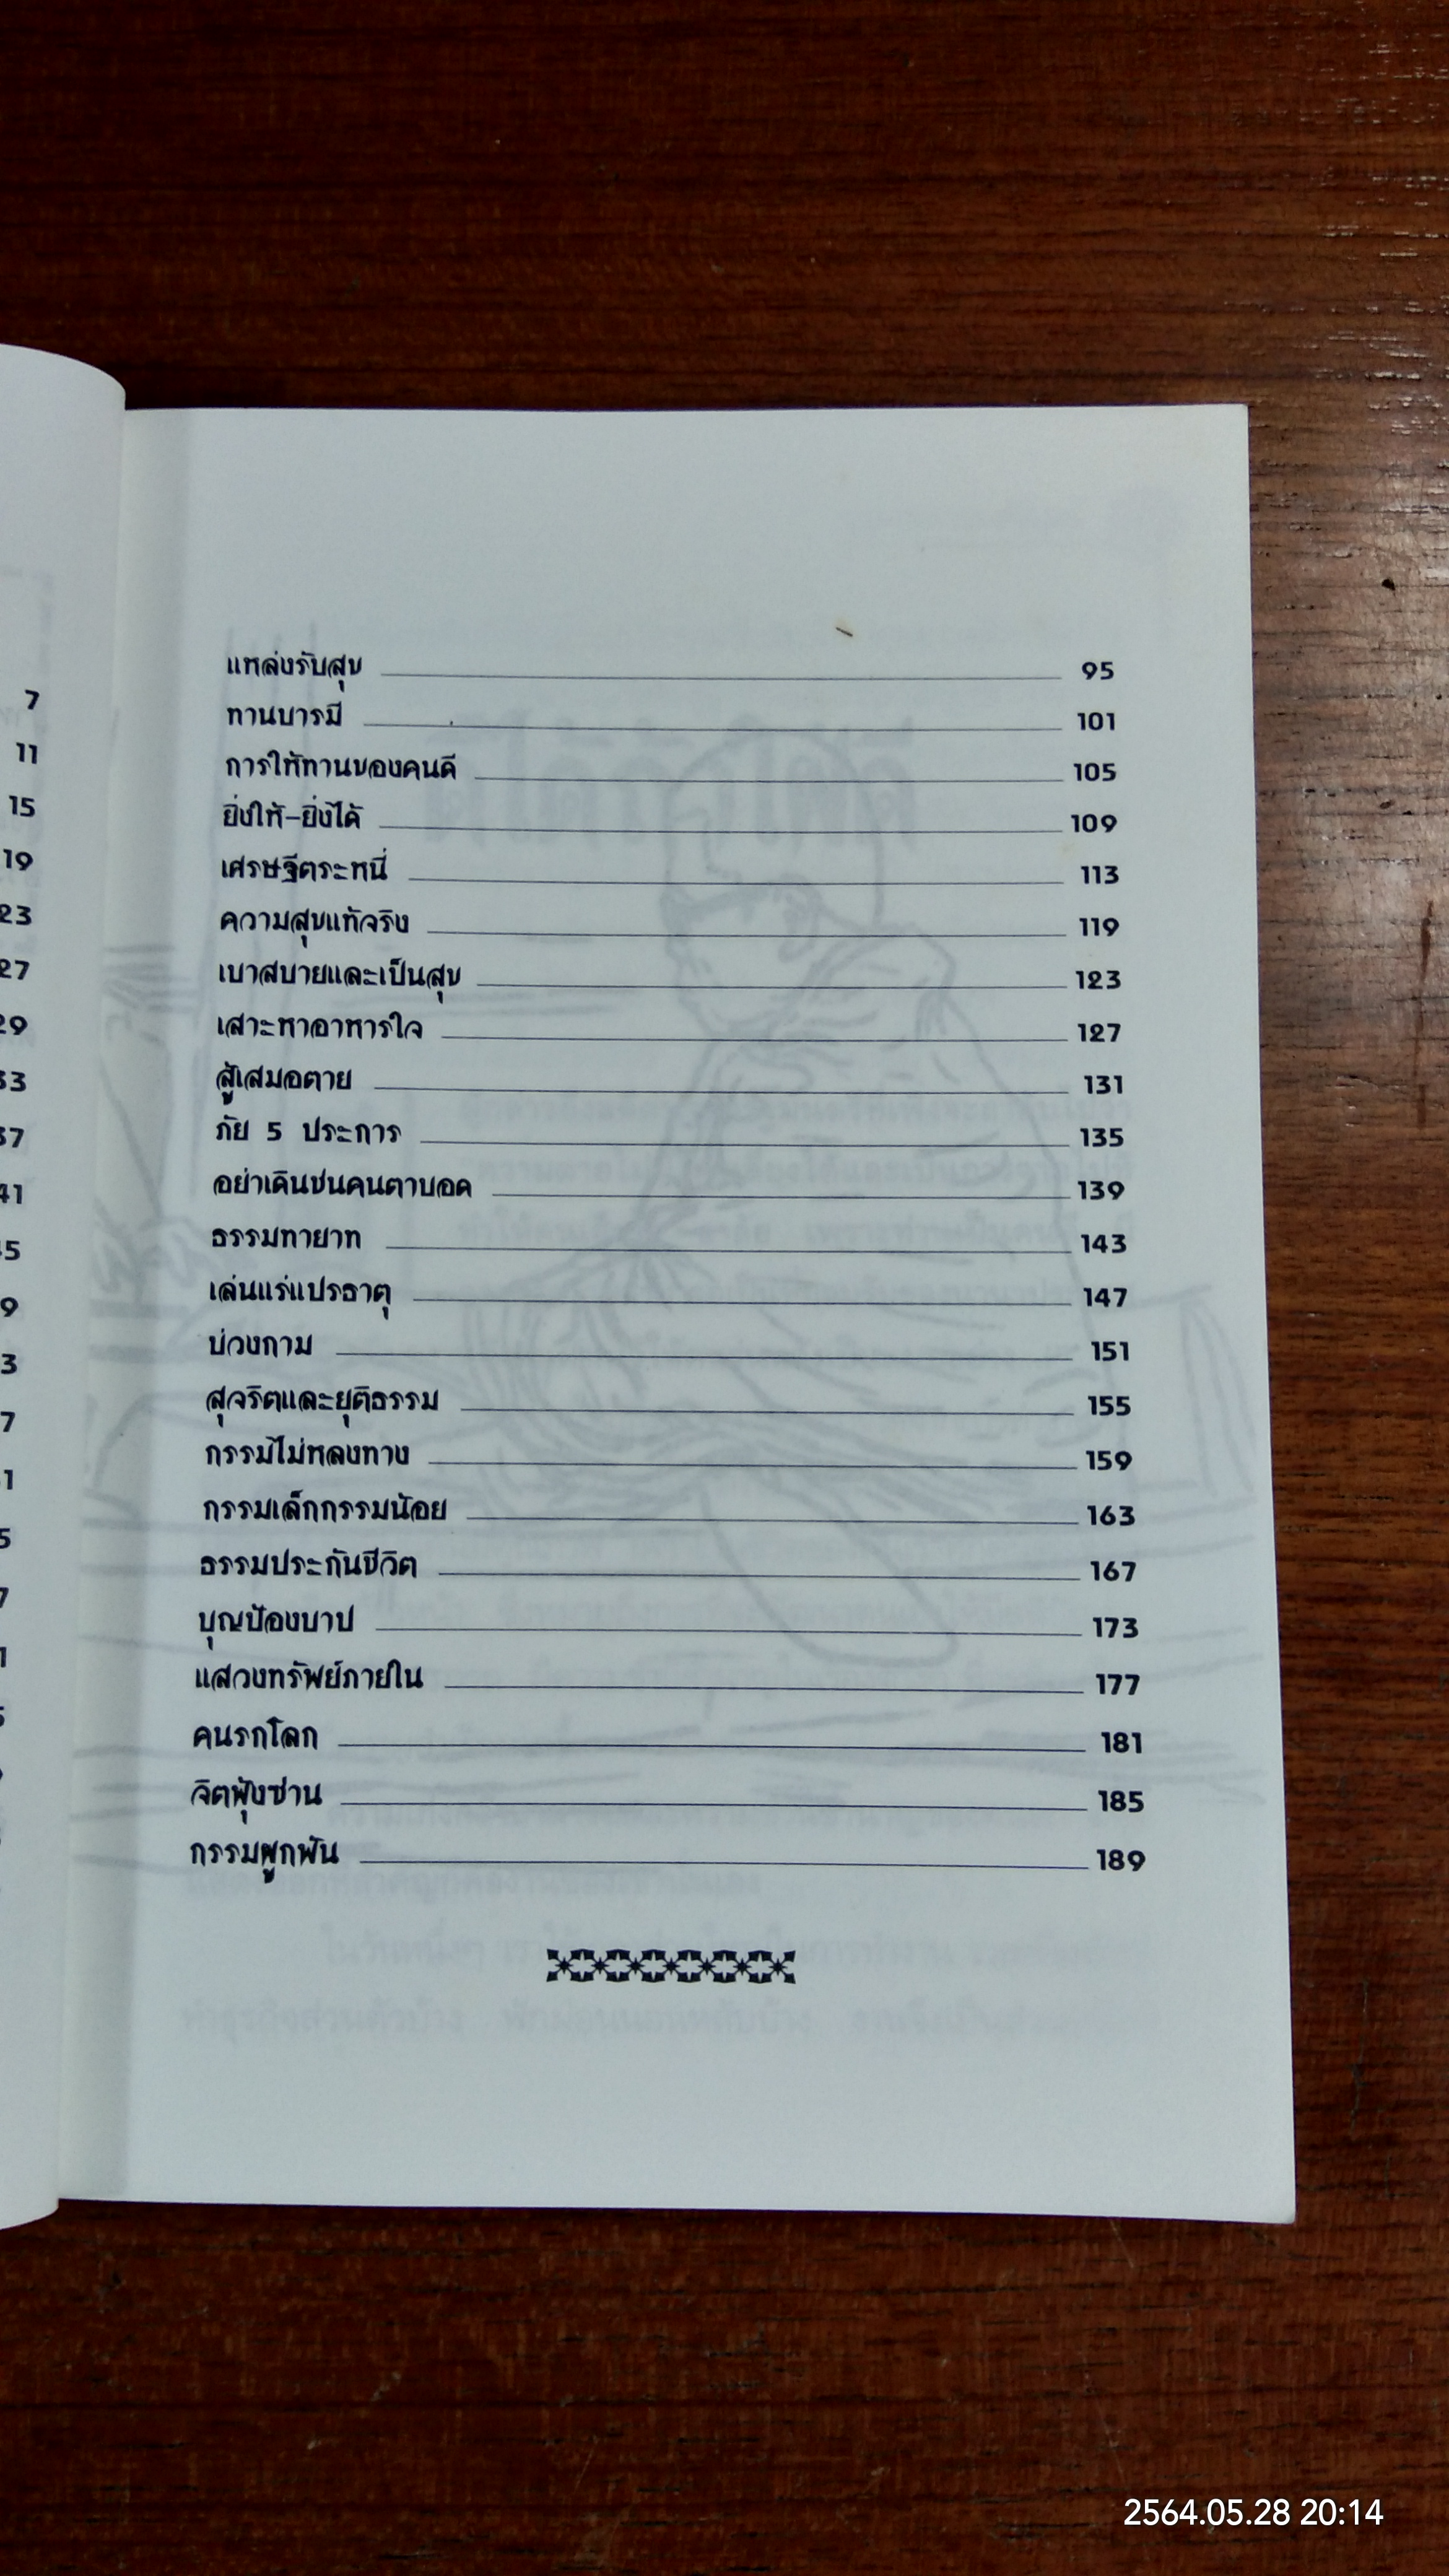 7
11
15
19
23
27
29
33
37
41
แหล่งรับสุข 95
ทานบารมี 101
การให้ทานของคนดี 105
ยิ่งให้-ยิ่งได้ 109
เศรษฐีตระหนี่ 113
ความสุขแท้จริง 119
เบาสบายและเป็นสุข 123
เสาะหาอาหารใจ 127
สู้เสมอตาย 131
ภัย 5 ประการ 135
อย่าเดินชนคนตาบอด 139
ธรรมทายาท 143
เล่นแร่แปรธาตุ 147
บ่วงกาม 151
สุจริตและยุติธรรม 155
กรรมไม่หลงทาง 159
กรรมเล็กกรรมน้อย 163
ธรรมประกันชีวิต 167
บุญป้องบาป 173
แสวงทรัพย์ภายใน 177
คนรกโลก 181
จิตฟุ้งซ่าน 185
กรรมผูกพัน 189
2564.05.28 20:14